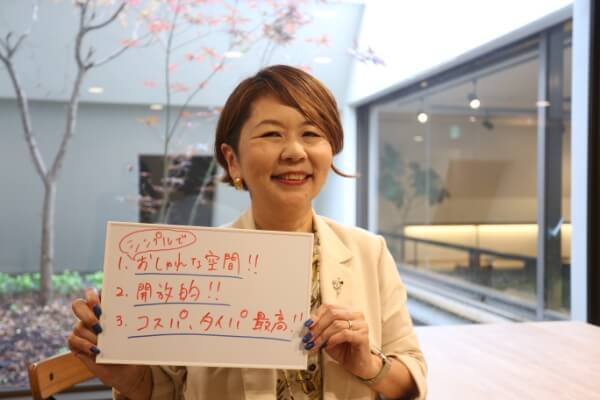 シンプルで
1. おしゃれな空間!!
2. 開放的!!
3. コスパ、タイパ最高!!